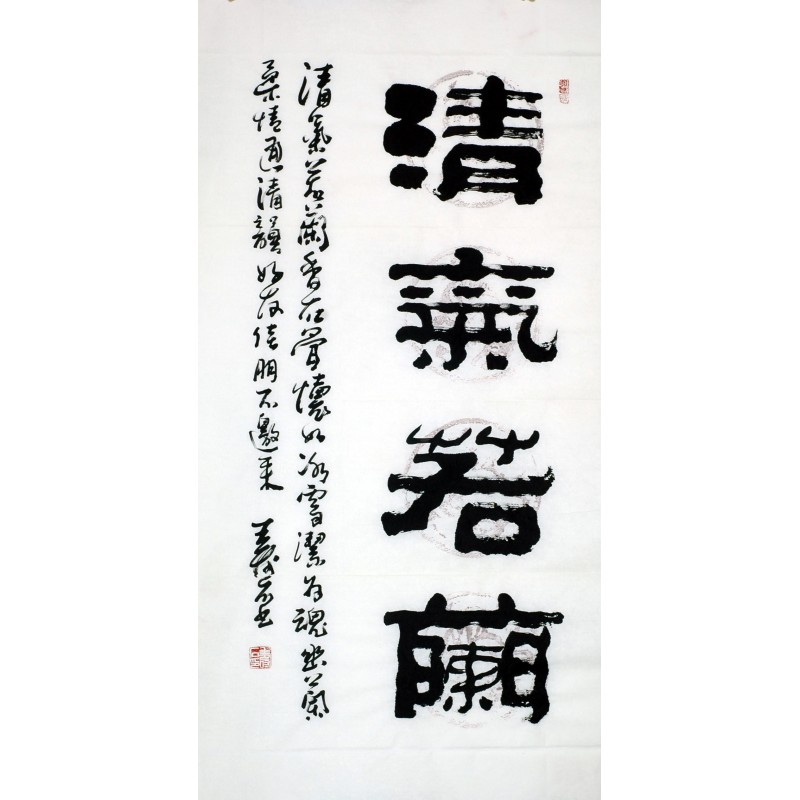 清氣若蘭
清氣若蘭香在骨懷如冰雪潔为魂幽蘭
柔情通清韻好友佳朋不邀来 书